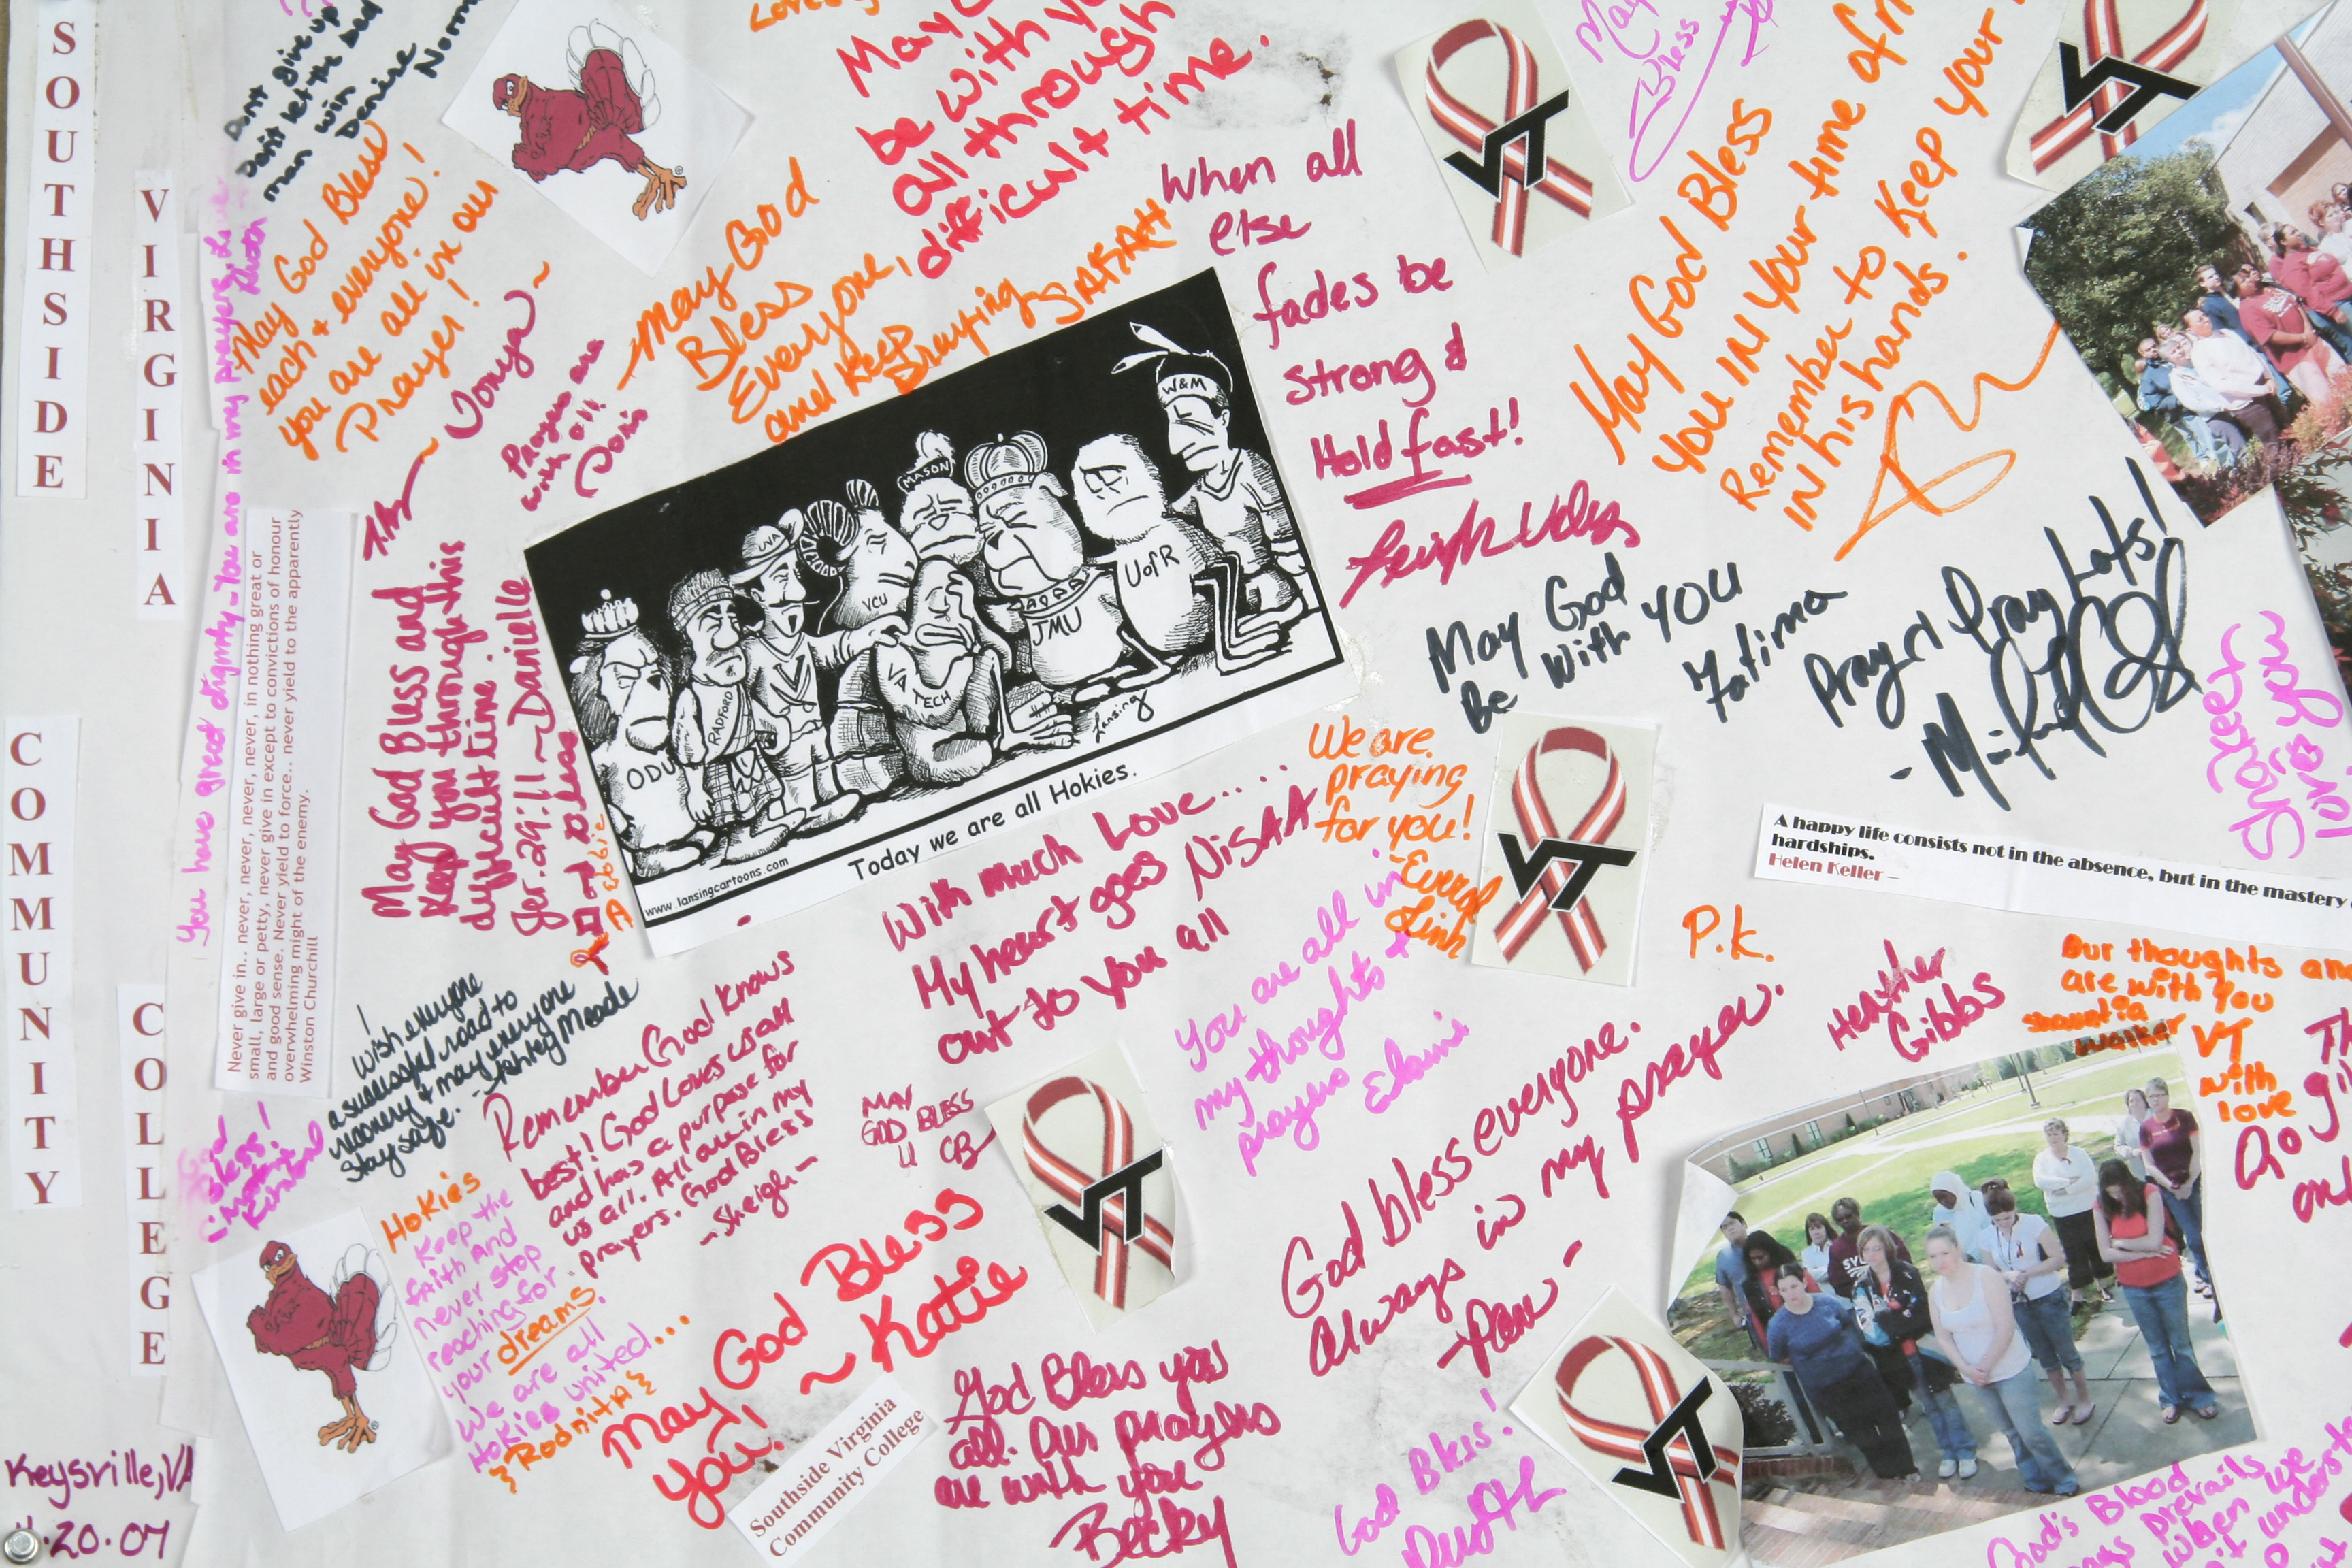 SOUTHSIDE
VIRGINIA
COMMUNITY
COLLEGE
Keysville, VA
.20.07
Don't give up
Don't let the bad
man win
Denise
May God Bless
each + everyone!
you are all in our
Prayer!
~ Tonya ~
You have great dignity - You are in my prayers,
Never give in.. never, never, never, never, in nothing great or
small, large or petty, never give in except to convictions of honour
and good sense. Never yield to force.. never yield to the apparently
overwhelming might of the enemy.
Winston Churchill
Prayers are
with all
Doris
May God Bless and
Keep you through this
dyfficult time.
Jer. 29:11 ~ Danielle
Debbie
~May God
Bless
Everyone,
and Keep
Praying
be with
all through
difficult time.
When all
else
fades be
strong &
Hold fast!
W&M
MASON
UVA
VCU
UofR
JMU
VA
TECH
RADFORD
ODU
Lansing
Today we are all Hokies.
www.lansingcartoons.com
VT
May
Bless
May God Bless
you IN your time of
Remember to Keep your
IN his hands.
VT
May God
Be With YOU
Fatima
Pray n Pray Lots!
We are
praying
for you!
VT
With much Love...
My heart goes
out to you all
NISAA
You are all in
my thoughts +
prayers
Elaine
A happy life consists not in the absence, but in the mastery
hardships.
Helen Keller –
P.K.
Heather
Gibbs
Our thoughts
are with you
VT
with
love
I
wish everyone
a successful road to
recovery & may everyone
stay safe. - Ashley Meade
God
Bless!
Remember God knows
best! God Loves us all
and has a purpose for
us all. All are in my
prayers. God Bless
- Sheigh -
MAY
GOD BLESS
U CB
VT
Hokies
Keep the
faith and
never stop
reaching for
your dreams.
We are all
Hokies united...
{Rodnita}
May God Bless
you!
~ Katie
Southside Virginia
Community College
God Bless you
all. Our prayers
are with you
Becky
God bless everyone.
Always in my prayer.
-Pam-
God Bless!
VT
God's Blood
prevails
when we